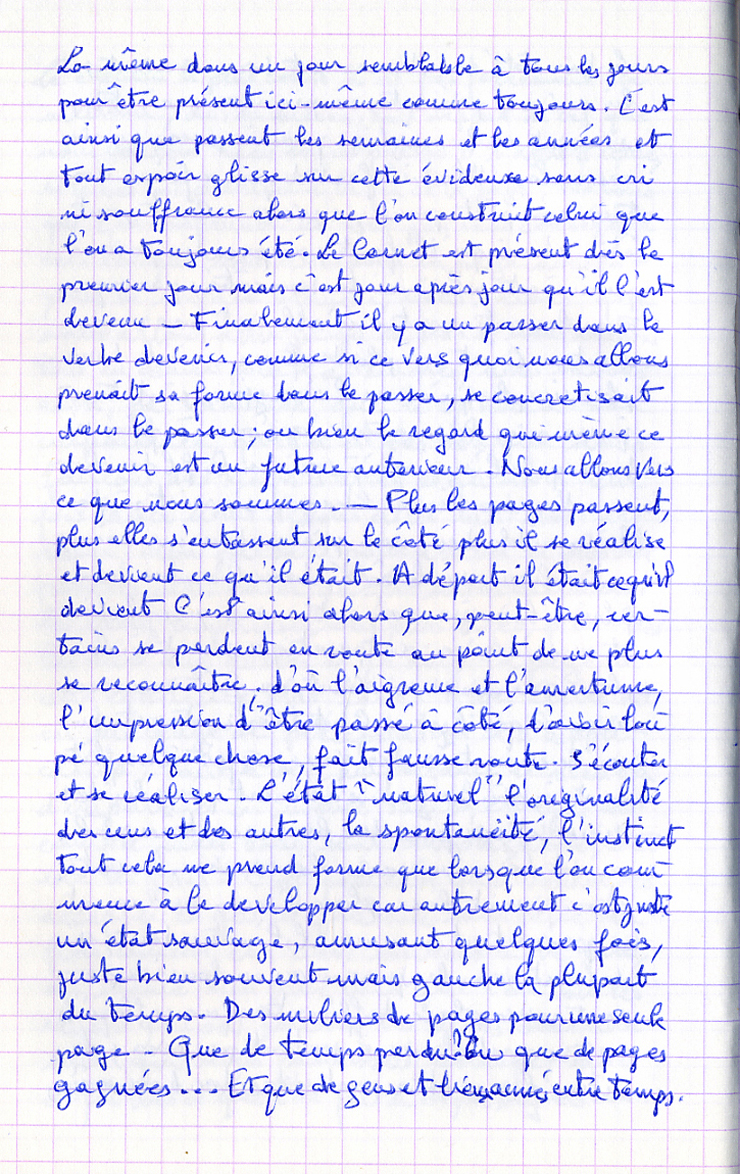 La même dans un jour semblable à tous les jours
pour être présent ici-même comme toujours. C'est
ainsi que passent les semaines et les années et
tout espoir glisse sur cette évidence sans cri
ni souffrance alors que l'on construit celui que
l'on a toujours été. Le Carnet est présent dès le
premier jour mais c'est jour après jour qu'il l'est
devenu — Finalement il y a un passer dans le
verbe devenir, comme si ce vers quoi nous allons
prenait sa forme dans le passer, se concretisait
dans le passer; ou bien le regard qui mène ce
devenir est un future anterieur. Nous allons vers
ce que nous sommes. — Plus les pages passent,
plus elles s'entassent sur le côté plus il se réalise
et devient ce qu'il était. A départ il était ce qu'il
devient C'est ainsi alors que, peut-être, cer-
tains se perdent en route au point de ne plus
se reconnaître. d'où l'aigreur et l'amertume,
l'impression d'être passé à côté, d'avoir lou
pé quelque chose, fait fausse route. S'écouter
et se réaliser. L'état "naturel" l'originalité
des uns et des autres, la spontanéité, l'instinct
tout cela ne prend forme que lorsque l'on com-
mence à le developper car autrement c'est juste
un état sauvage, amusant quelques fois,
juste bien souvent mais gauche la plupart
du temps. Des milliers de pages pour une seule
page. Que de temps perdu? Ou que de pages
gagnées... Et que de gens et entre temps.